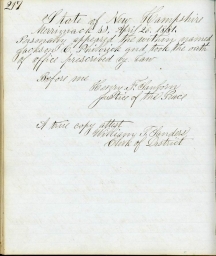 281
State of New Hampshire
Merrimack SS. April 20, 1861.
Personally appeared the within named
Jackson C. and took the oath
of office prescribed by law.
Before me
Henry F. Sanborn
Justice of the Peace
A true copy attest
William F. Sanders
Clerk of District